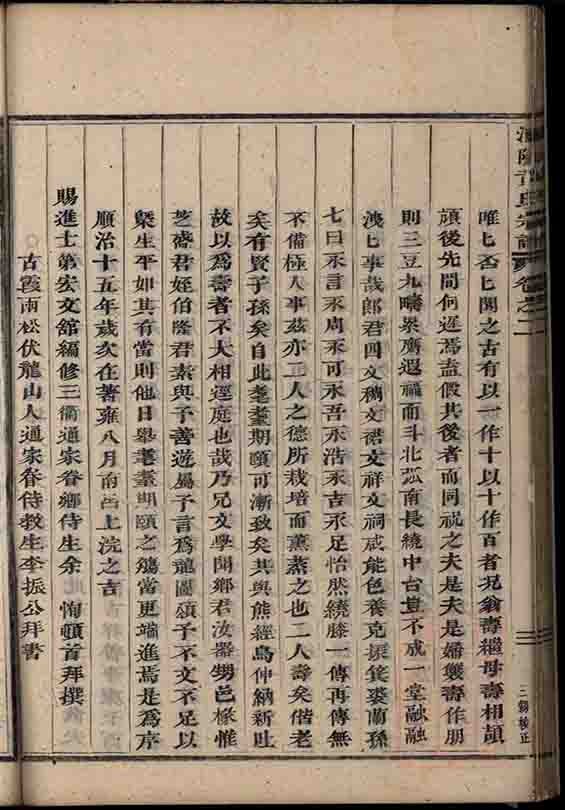 唯七否七聞之古有以一作十以十作百者況翁壽繼母壽相頡
頏後先間何遲焉盍假其後者而同祝之夫是夫是婦雙壽作朋
則三豆九疇泉膺遐福而斗北弧南長繞中台豈不成一堂融融
洩七事哉郎君四文穚文裙文祥文祠咸能色養克振箕裘蘭孫
七曰永言永周永可永吾永浩永吉永足怡然繞膝一傳再傳無
不備極人事茲亦二人之德所栽培而薰蒸之也二人壽矣偕老
矣有賢子孫矣自此耄耋期頤可漸致矣其與熊經鳥伸納新吐
故以為壽者不大相逕庭也哉乃兄文學開鄉君汝器甥邑椽惟
芝蔭君姪伯隆君素與予善遊屬予言為龍圖頌予不文不足以
槩生平如其有當則他日舉耄耋期頤之殤當更端進焉是為序
順治十五年歲次在著雍八月南呂上浣之吉
賜進士第安文館編修三衢通家眷鄉侍生余 恂頓首拜撰
古霞雨松伏龍山人通家眷侍教生李振公拜書
黃氏宗譜 卷之二
三錫校正